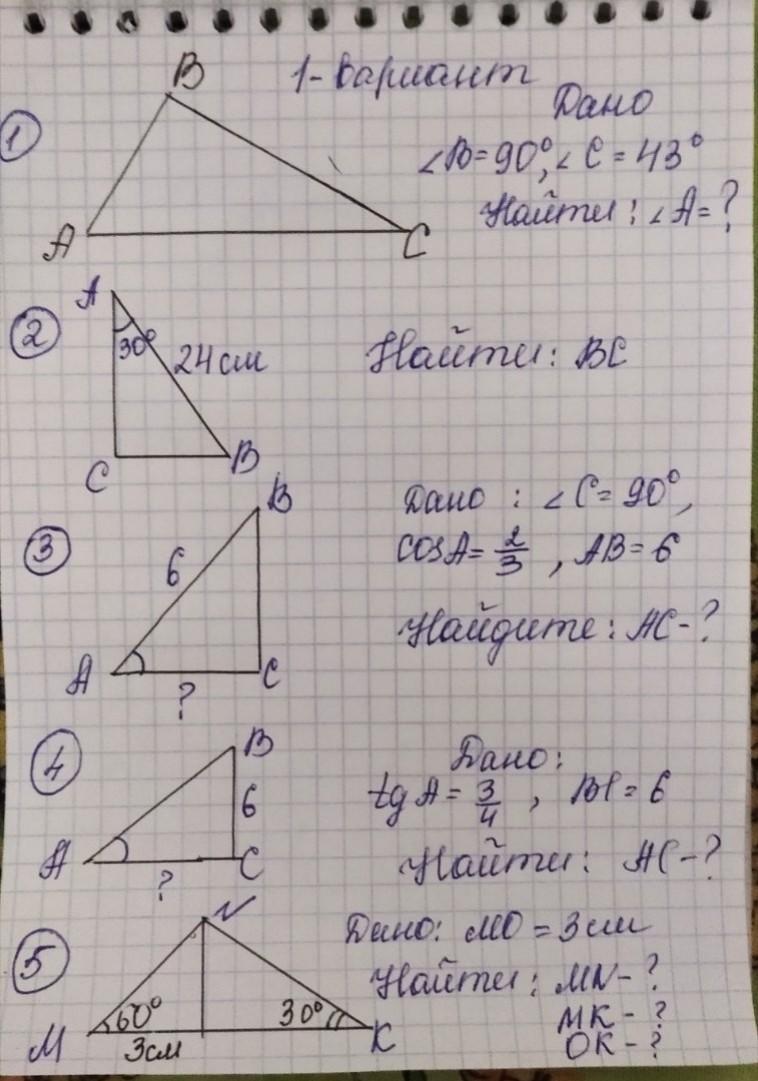 1-вариант
B
Дано
1
∠B=90°, ∠C=43°
Найти: ∠A=?
A
C
A
2
30°
24 см
Найти: BC
C
B
B
Дано: ∠C=90°,
3
6
cosA=2/3, AB=6
Найдите: AC-?
A
C
?
B
Дано:
4
6
tgA=3/4, BC=6
A
C
Найти: AC-?
?
N
Дано: MO=3см
5
Найти: MN-?
60°
30°
MK-?
M
3см
K
OK-?